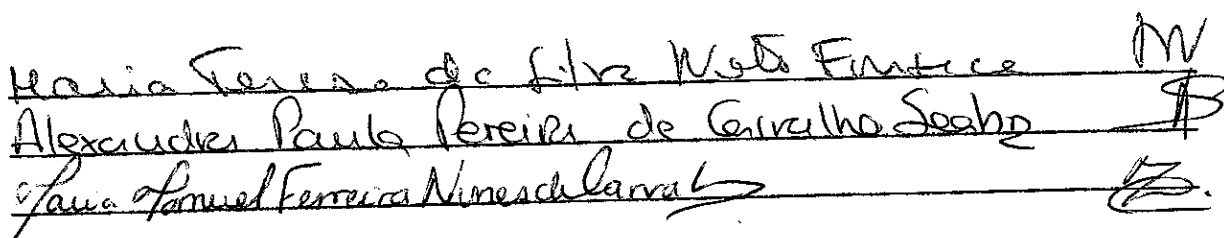 Maria Teresa da Silva Neto Fonseca
Alexandra Paula Pereira de Carvalho Seabra
Maria Manuel Ferreira Nunes de Carvalho